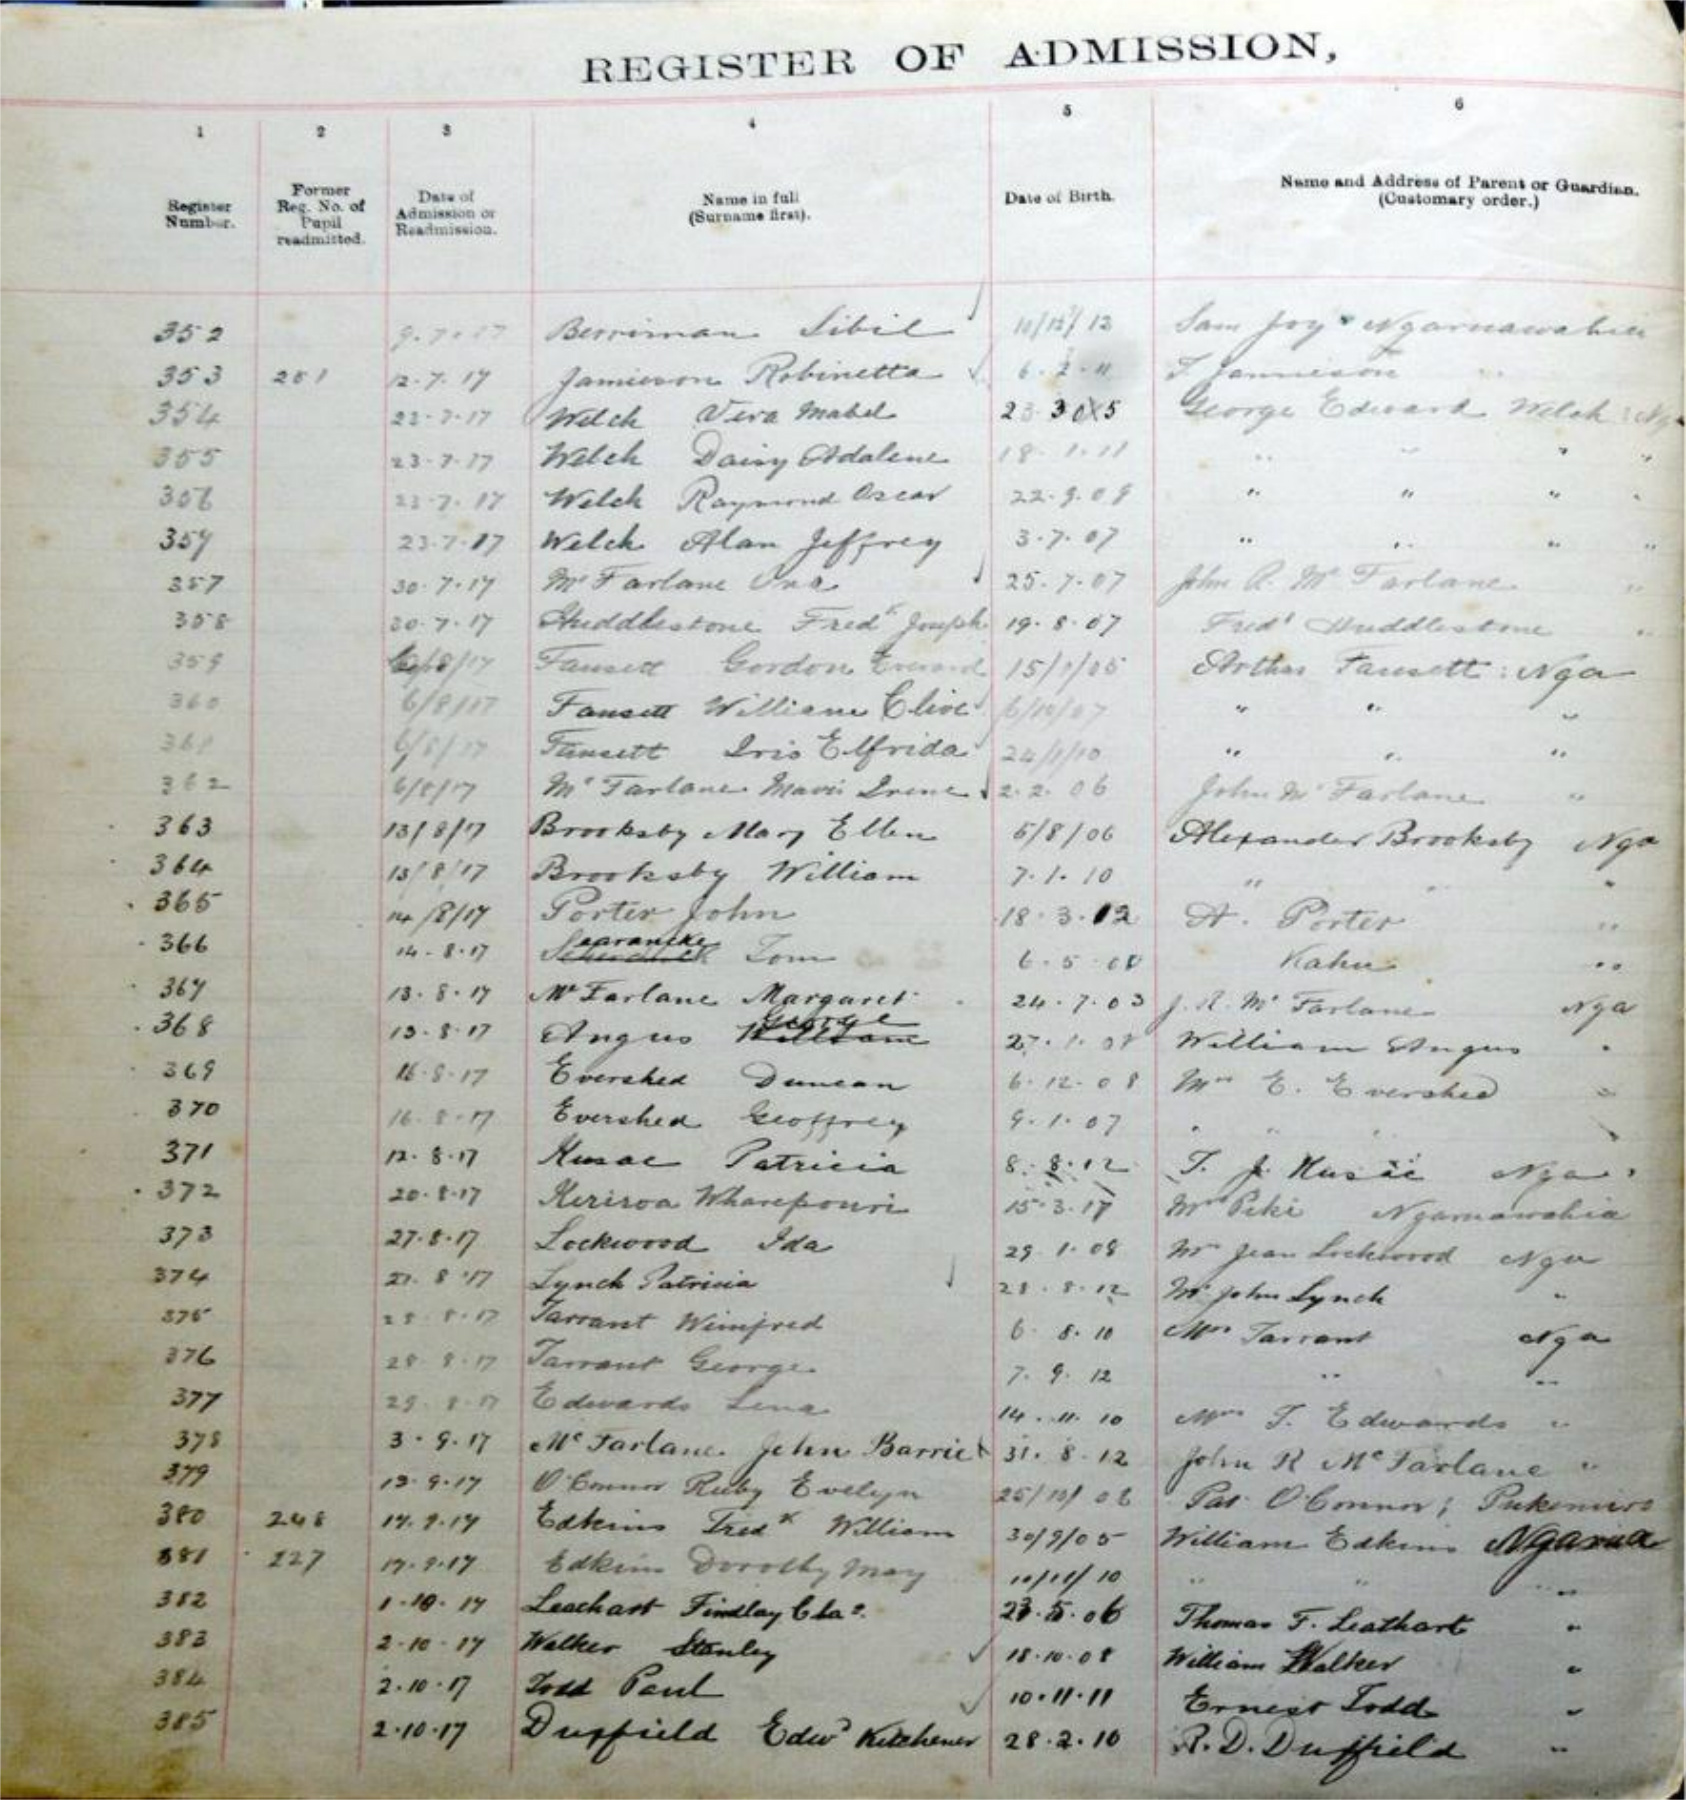 REGISTER OF ADMISSION,
1 2 3 4 5 6
Register Number. Former Reg. No. of Pupil readmitted. Date of Admission or Readmission. Name in full (Surname first). Date of Birth. Name and Address of Parent or Guardian. (Customary order.)
352 9.7.17 Berriman Sibil 12 Sam Joy Ngaruawahia
353 251 12.7.17 Jamieson Robinetta 6.2.11 T Jamieson "
354 23.7.17 Welch Vera Mabel 23 3 05 George Edward Welch
355 23.7.17 Welch Daisy Adalene 18.1.11 " " " "
356 23.7.17 Welch Raymond Oscar 22.9.09 " " " "
357 23.7.17 Welch Alan Jeffrey 3.7.07 " " " "
357 30.7.17 McFarlane Una 25.7.07 John R. McFarlane "
358 30.7.17 Huddlestone Fredk Joseph 19.8.07 Fredk Huddlestone "
359 6/8/17 Fausett Gordon 15/1/05 Arthur Fausett : Nga
360 6/8/17 Fausett William Clive 6/10/07 " " "
361 6/8/17 Fausett Iris Elfrida 24/1/10 " " "
362 6/8/17 McFarlane Mavis Irene 2.2.06 John McFarlane "
363 13/8/17 Brooksby Mary Ellen 5/8/06 Alexander Brooksby Nga
364 13/8/17 Brooksby William 7.1.10 " " "
365 14/8/17 Porter John 18.3.12 A. Porter "
366 14.8.17 Searancke Tom 6.5.08 Kahu "
367 13.8.17 McFarlane Margaret 24.7.03 J. R. McFarlane Nga
368 13.8.17 Angus William George 27.1.08 William Angus "
369 16.8.17 Evershed Duncan 6.12.08 Mrs E. Evershed "
370 16.8.17 Evershed Geoffrey 9.1.07 " " " "
371 12.8.17 Kusac Patricia 8.8.12 T. J. Kusac Nga
372 20.8.17 Keriroa Wharepouri 15.3.17 Mr Peki Ngaruawahia
373 27.8.17 Lockwood Ida 29 1.08 Mr Jean Lockwood Nga
374 27.8.17 Lynch Patricia 28.8.12 Mr John Lynch "
375 28.8.17 Tarrant Winifred 6 8.10 Mrs Tarrant Nga
376 28 8.17 Tarrant George 7.9.12 " "
377 29.8.17 Edwards Lena 14.11.10 Mrs T. Edwards "
378 3.9.17 McFarlane John Barrie 31.8.12 John R McFarlane "
379 13.9.17 O'Connor Ruby Evelyn 25/10/08 Pat O'Connor;
380 248 17.9.17 Edkins Fredk William 30/9/05 William Edkins Ngarua
381 227 17.9.17 Edkins Dorothy May 10 " " "
382 1.10.17 Leathart Findlay Chas. 23.5.06 Thomas F. Leathart "
383 2.10.17 Walker Stanley 18.10.08 William Walker "
384 2.10.17 Todd Paul 10.11.11 Ernest Todd "
385 2.10.17 Duffield Edwd Kitchener 28.2.10 R. D. Duffield "